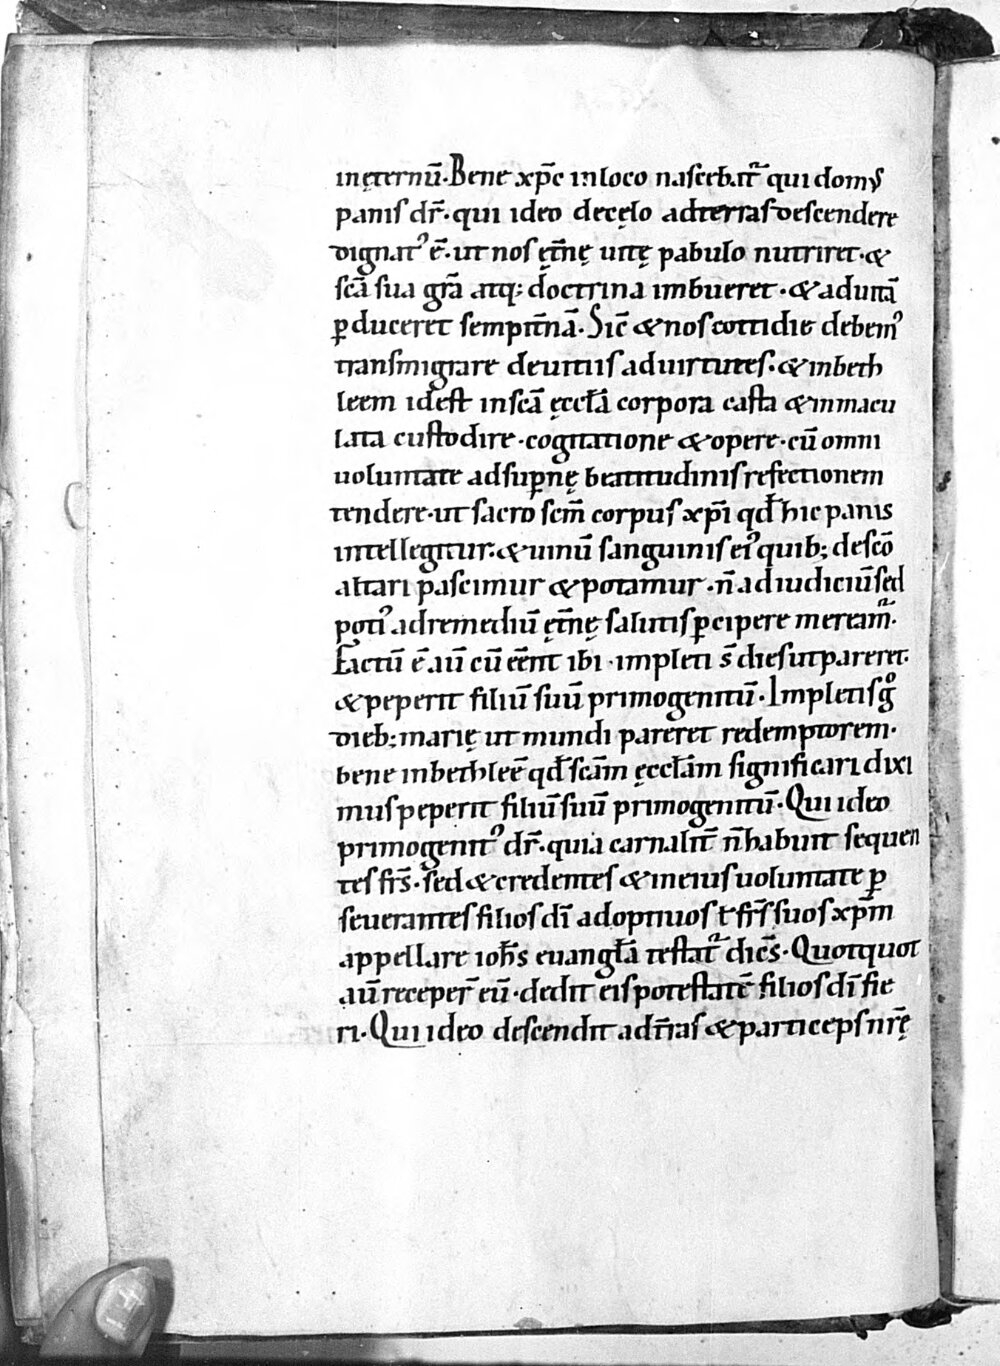 inęternū. Bene xp̄c inloco nascebat᷑ qui domꝰ
panis dr̄. qui ideo decęlo adterras descendere
dignatꝰ ē. ut nos ęt̄nę uitę pabulo nutriret. &
sc̄a sua gr̄a atq; doctrina imbueret. & aduitā
ꝑduceret sempit̄nā. Sic̄ & nos cottidie debemꝰ
transmigrare deuitiis aduirtutes. & inbeth
leem idest insc̄ā ęccłā corpora casta & inmacu
lata custodire. cogitatione & opere. cū omni
uoluntate adsuꝑnę beatitudinis refectionem
tendere. ut sacro scm̄ corpus xp̄i qd̄ hic panis
intellegitur. & uinū sanguinis eiꝰ quib; descō
altari pascimur & potamur. n̄ adiudiciū sed
potiꝰ adremediū ęt̄nę salutis ꝑcipere meream᷑.
Factū ē aū cū eēnt ibi. impleti s̄ dies ut pareret.
& peperit filiū suū primogenitū. Impletis gͦ
dieb; marię ut mundi pareret redemptorem.
bene inbethleē qd̄ scām ęccłām significari dixi
mus peperit filiū suū primogenitū. Qui ideo
primogenitꝰ dr̄. quia carnalit̄ n̄ habuit sequen
tes fr̄s. sed & credentes & ineius uoluntate ꝑ
seuerantes filios dī adoptiuos ł fr̄s suos xp̄m
appellare ioh̄s euangłā testat᷑ dic̄s. Quotquot
aū receper̄ eū. dedit eis potestatē filios dī fie
ri. Qui ideo descendit adt̄ras & particeps nr̄ę